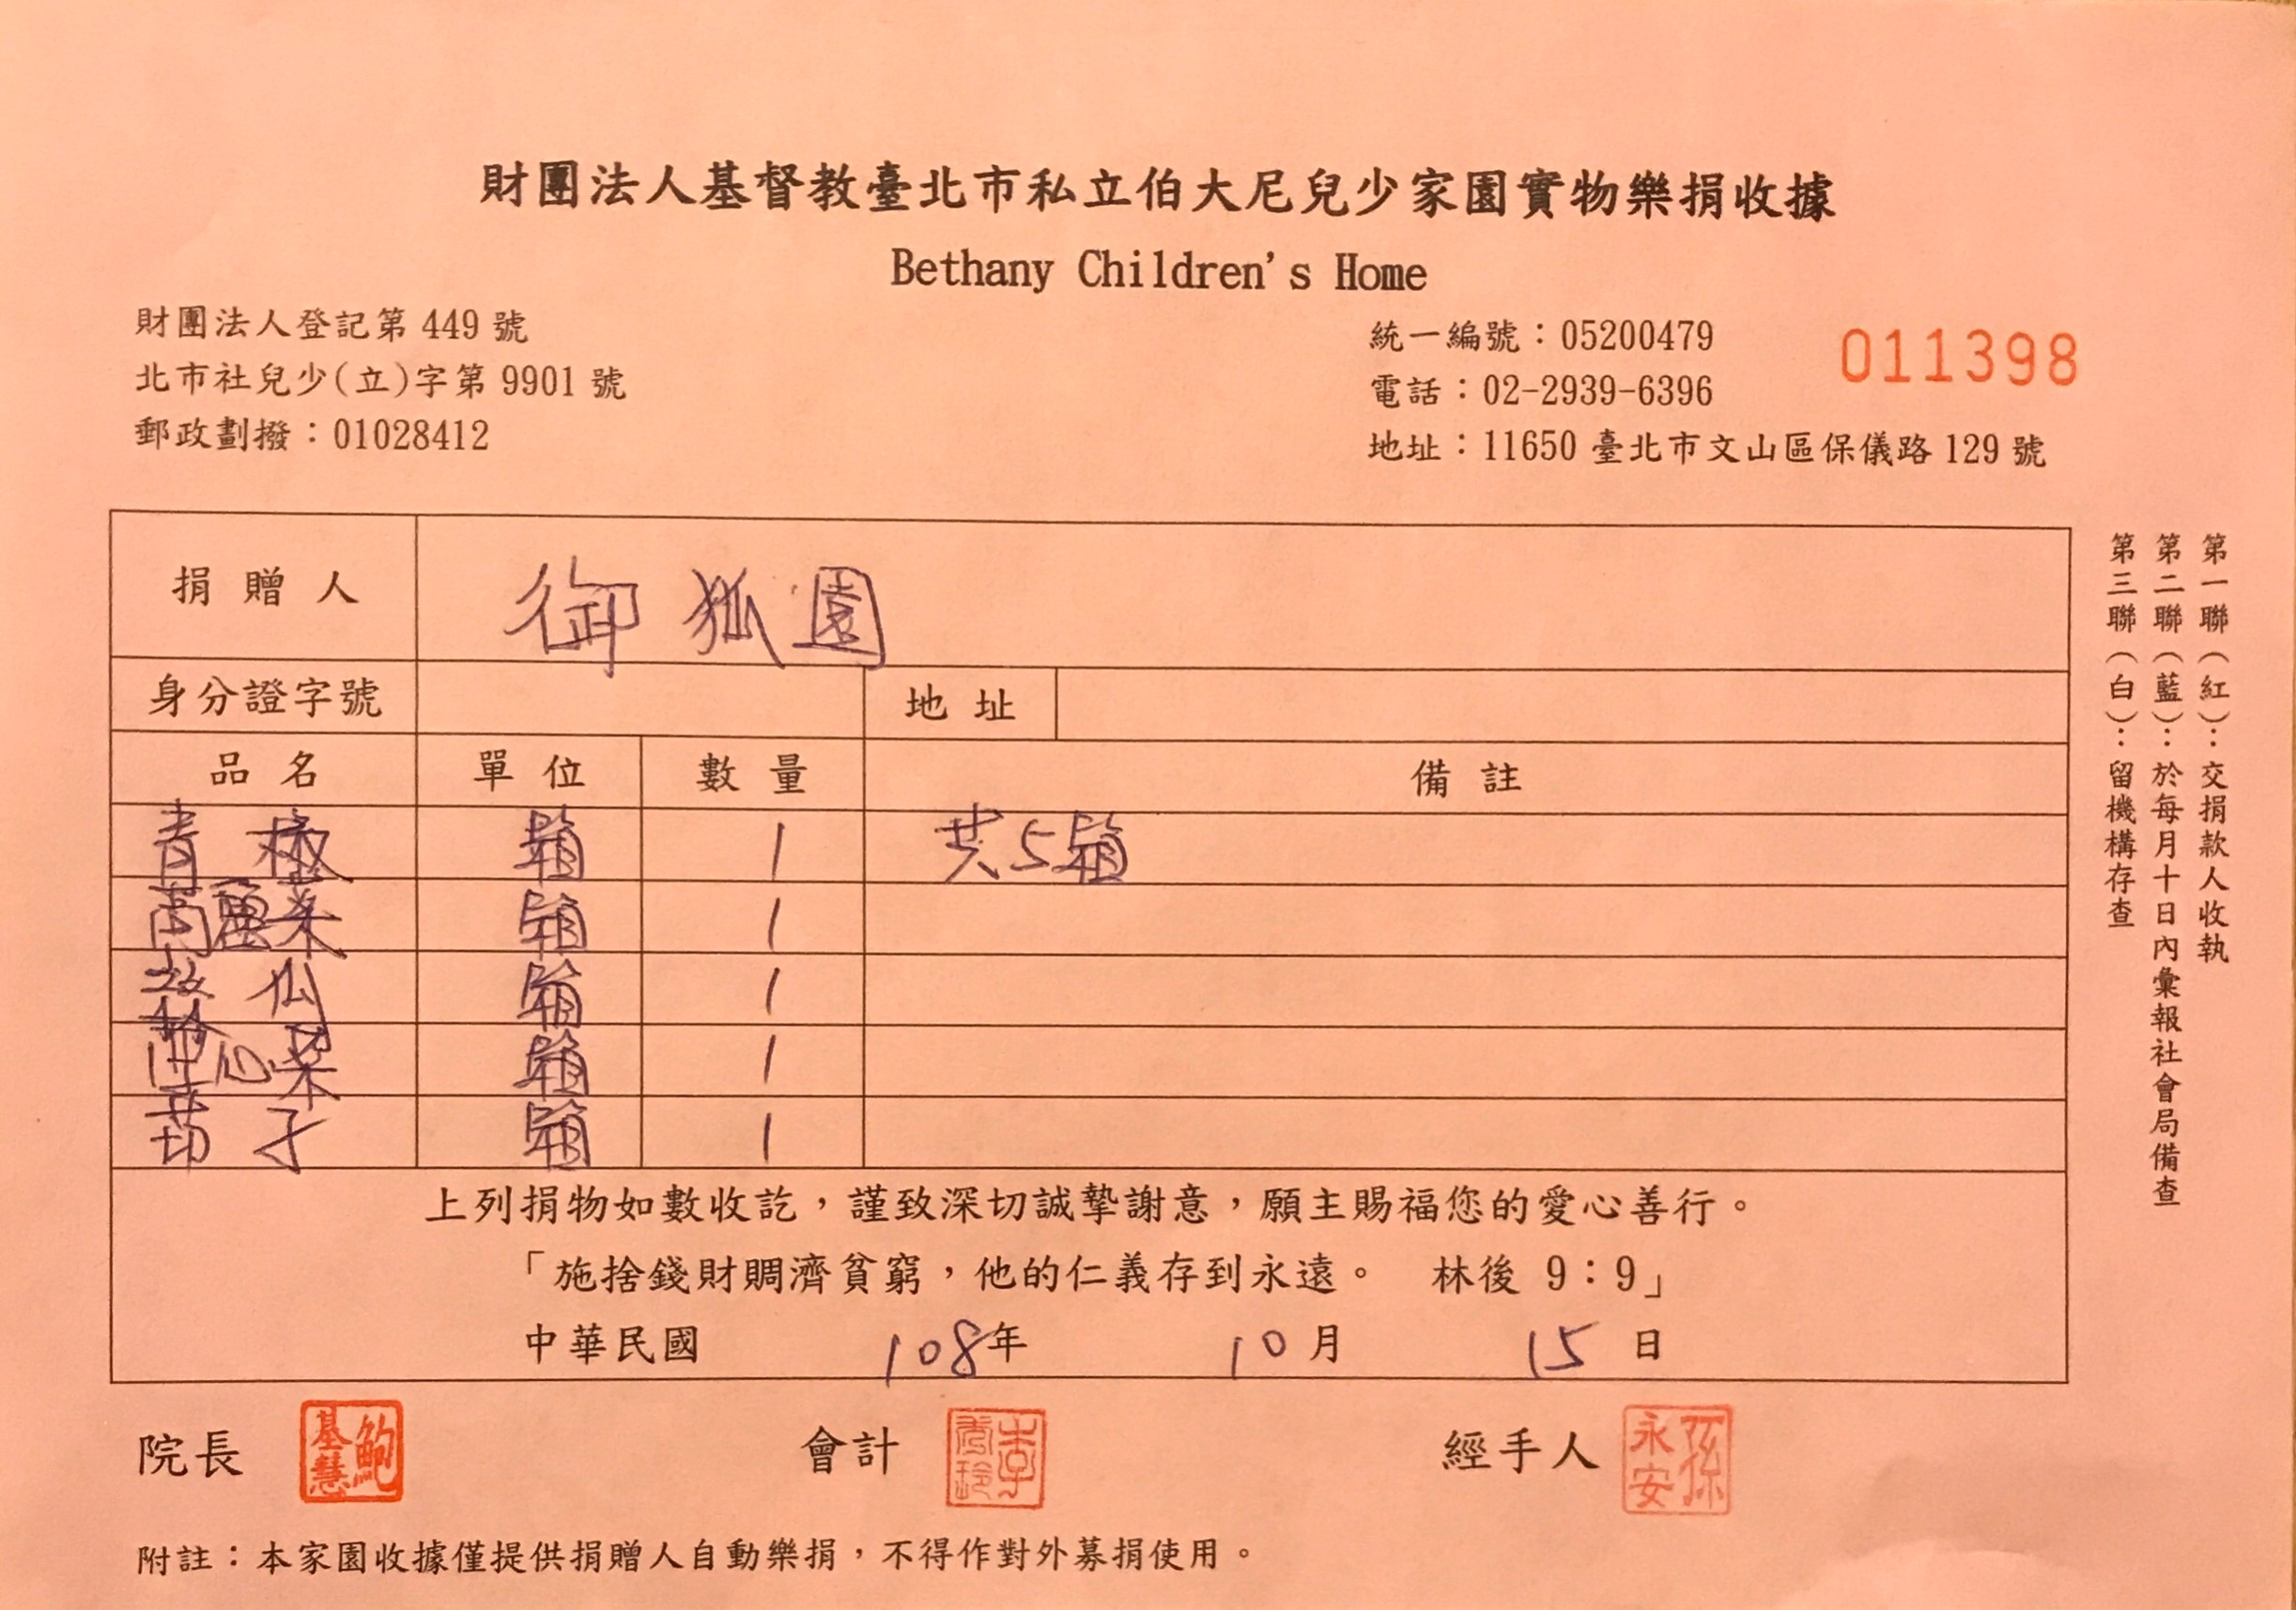 財團法人基督教臺北市私立伯大尼兒少家園實物樂捐收據
Bethany Children's Home
財團法人登記第 449 號
北市社兒少(立)字第 9901 號
郵政劃撥：01028412
統一編號：05200479
電話：02-2939-6396
地址：11650 臺北市文山區保儀路 129 號
011398
捐贈人 御狐園
身分證字號 地址
品名 單位 數量 備註
青椒 箱 1 共5箱
高麗菜 箱 1
瓜 箱 1
心菜 箱 1
茄子 箱 1
上列捐物如數收訖，謹致深切誠摯謝意，願主賜福您的愛心善行。
「施捨錢財賙濟貧窮，他的仁義存到永遠。 林後 9：9」
中華民國 108年 10月 15日
院長 鮑基慧 會計 李秀玲 經手人 孫永安
附註：本家園收據僅提供捐贈人自動樂捐，不得作對外募捐使用。
第一聯（紅）：交捐款人收執
第二聯（藍）：於每月十日內彙報社會局備查
第三聯（白）：留機構存查